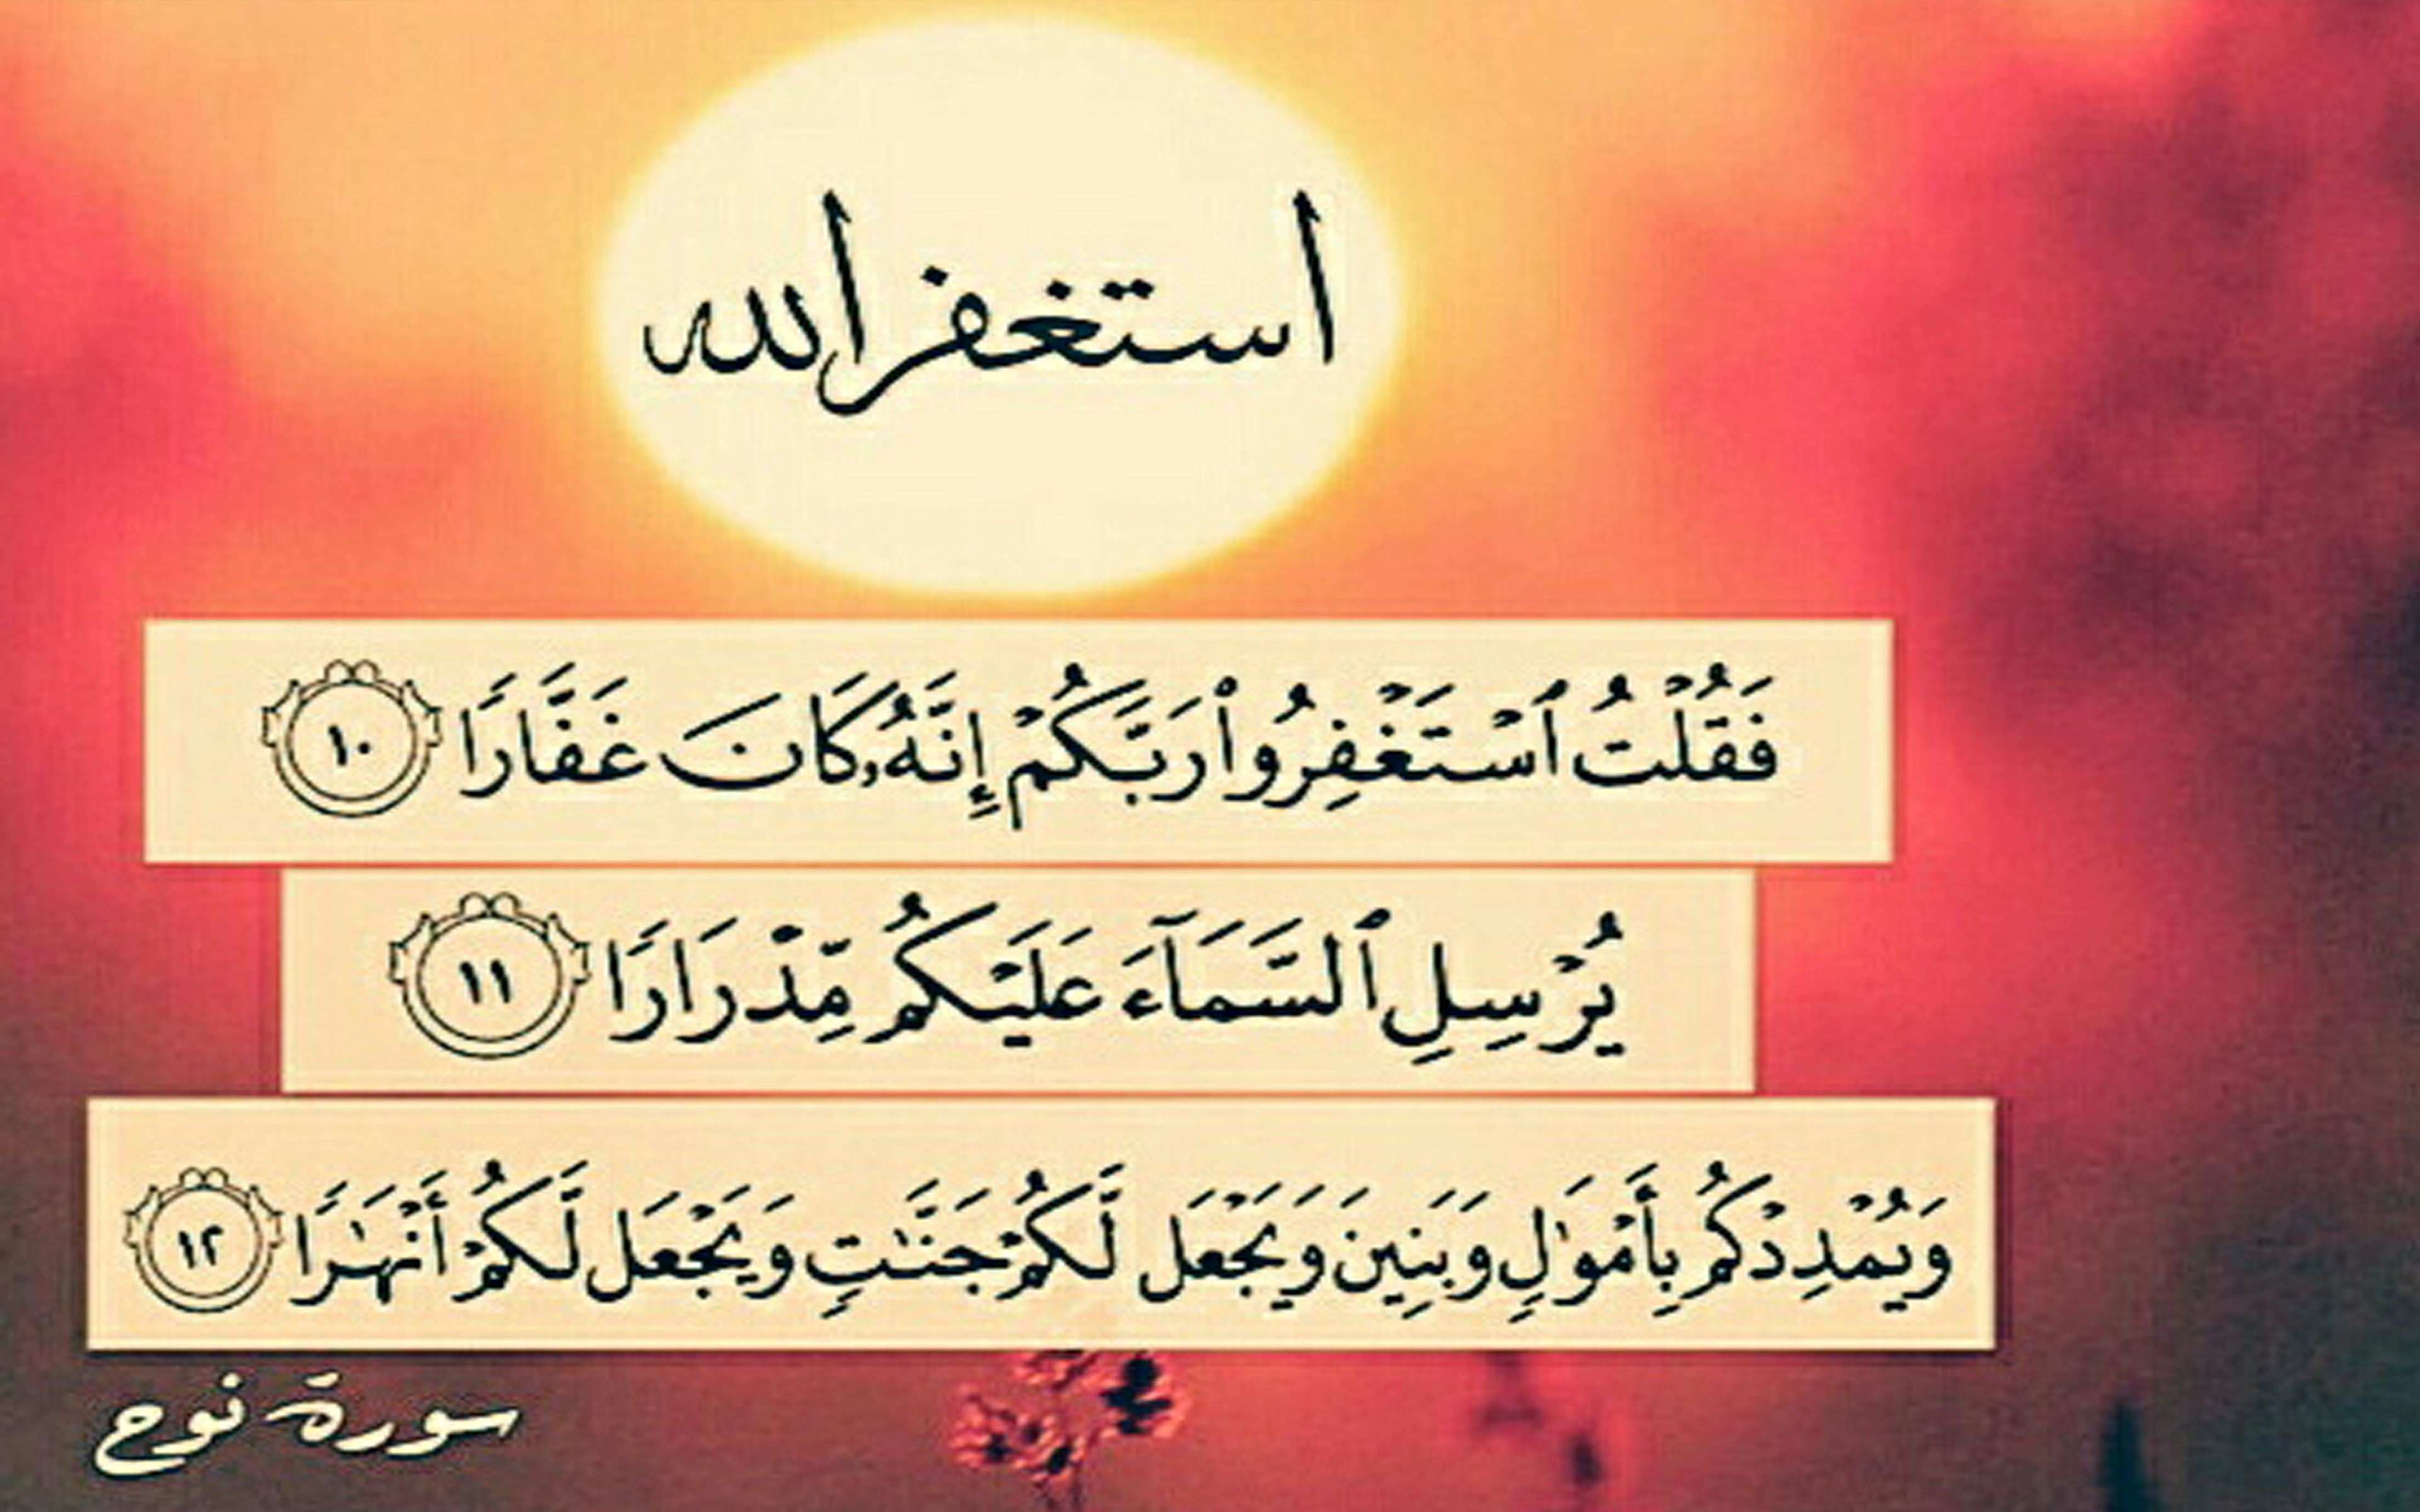 استغفر الله
فَقُلْتُ ٱسْتَغْفِرُوا۟ رَبَّكُمْ إِنَّهُۥ كَانَ غَفَّارًا ١٠
يُرْسِلِ ٱلسَّمَآءَ عَلَيْكُم مِّدْرَارًا ١١
وَيُمْدِدْكُم بِأَمْوَٰلٍ وَبَنِينَ وَيَجْعَل لَّكُمْ جَنَّـٰتٍ وَيَجْعَل لَّكُمْ أَنْهَـٰرًا ١٢
سورة نوح